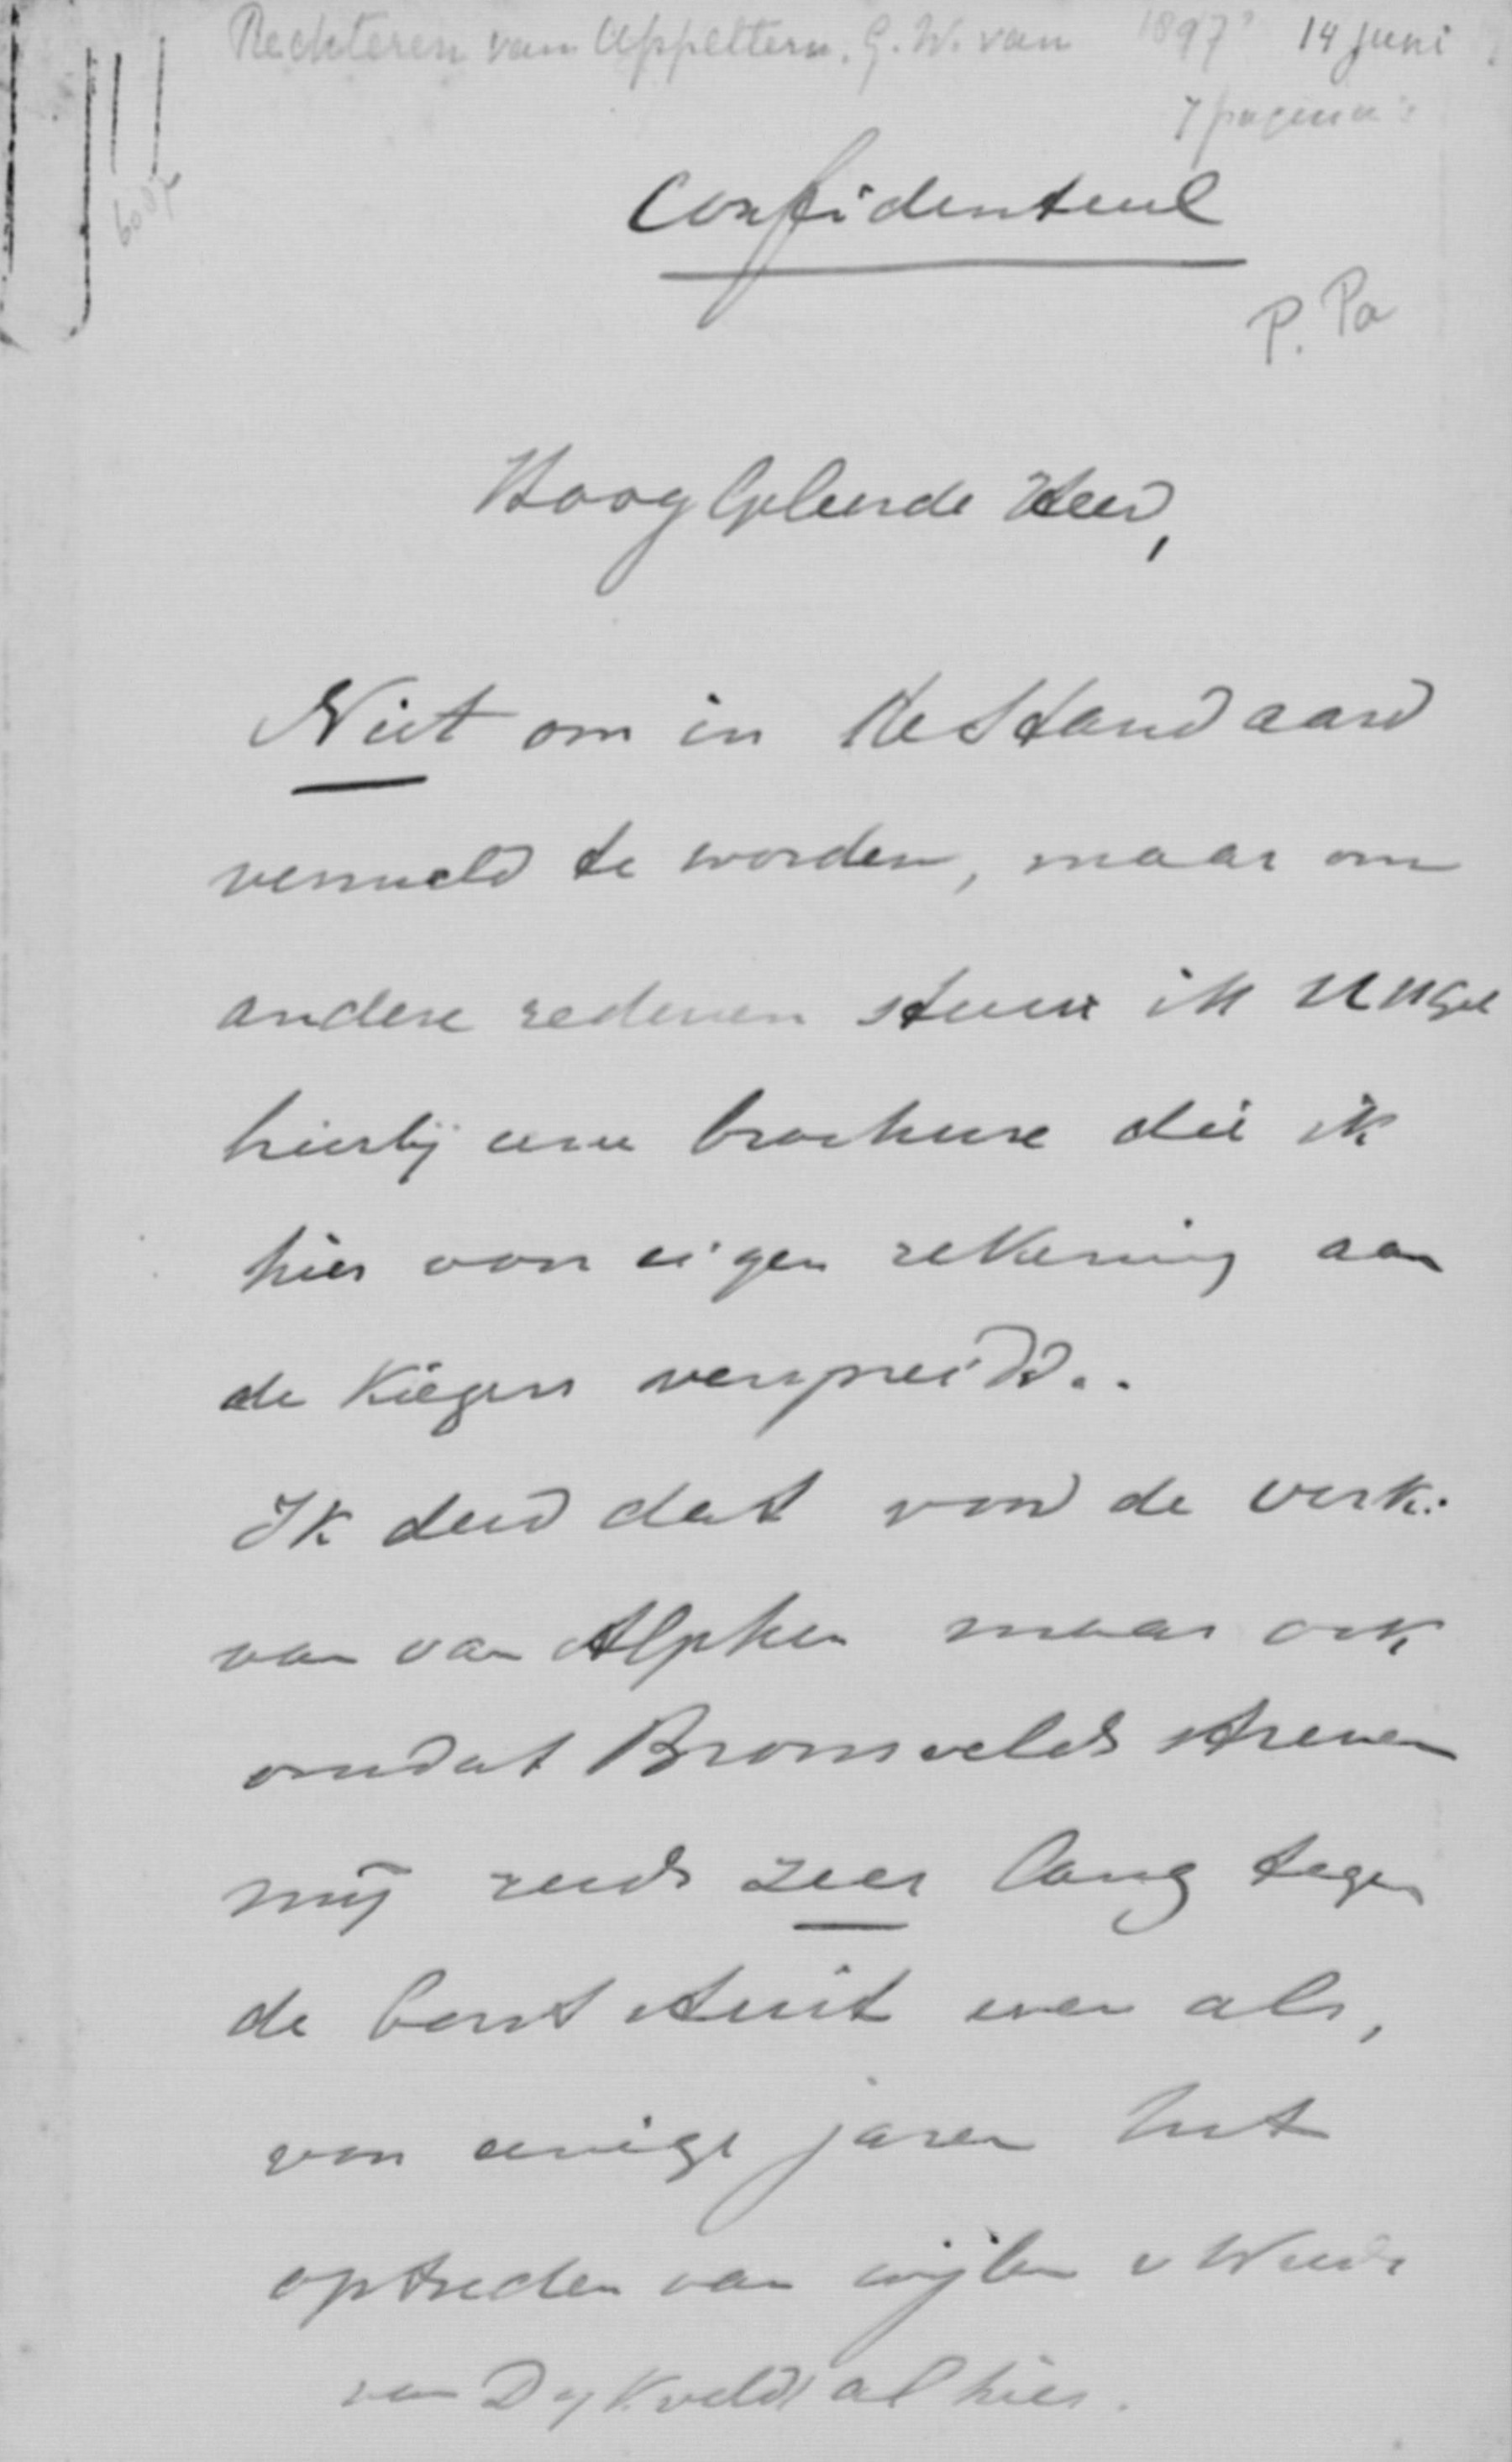 Rechteren van Appeltern. G. W. van 1897? 14 juni
7 pagina's
6007
Confidentieel
P. Pa
HoogGeleerde Heer,
Niet om in de Standaard
vermeld te worden, maar om
andere redenen stuur ik UHgel
hierbij eene brochure die ik
hier voor eigen rekening aan
de Kiezers verspreidd..
Ik deed dat voor de verk:
van van Alphen maar ook
omdat Bronsvelds streven
mij reeds zeer lang tegen
de borst stuit even als,
voor eenige jaren het
optreden van wijlen v Weede
van Dijkveld alhier.